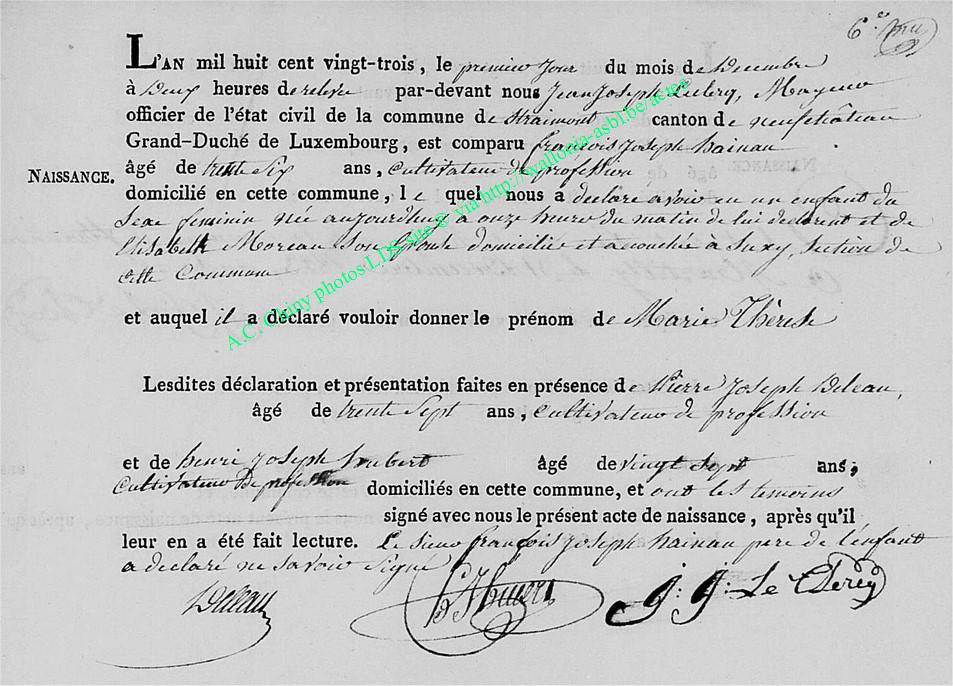 6.e
L'AN mil huit cent vingt-trois, le premier jour du mois de Decembre
à Deux heures de relevé par-devant nous Jean Joseph Leclerq, Mayeur
officier de l'état civil de la commune de Straimont canton de neufchâteau
Grand-Duché de Luxembourg, est comparu françois Joseph hainau
NAISSANCE. âgé de trente Six ans, cultivateur de profession
domicilié en cette commune, le quel nous a declaré avoir eu un enfant du
Sexe feminin née aujourdhuy à onze heures du matin de lui declarent et de
Elisabeth Moreau Son Epouse domicilié et acouchée à Suxy, Section de
cette Commune
et auquel il a déclaré vouloir donner le prénom de Marie Thérese
Lesdites déclaration et présentation faites en présence de Pierre Joseph Deleau,
âgé de trente Sept ans, cultivateur de profession
et de henri Joseph hubert âgé de vingt Sept ans,
Cultivateur De profession domiciliés en cette commune, et ont les temoins
signé avec nous le présent acte de naissance, après qu'il
leur en a été fait lecture. Le Sieur françois Joseph hainau pere de l'enfant
a declaré ne Savoir Signé
Deleau J: J: Le Clercq
A.C. Chiny photos LDS site @ via http://wallonia-asbl.be/actes